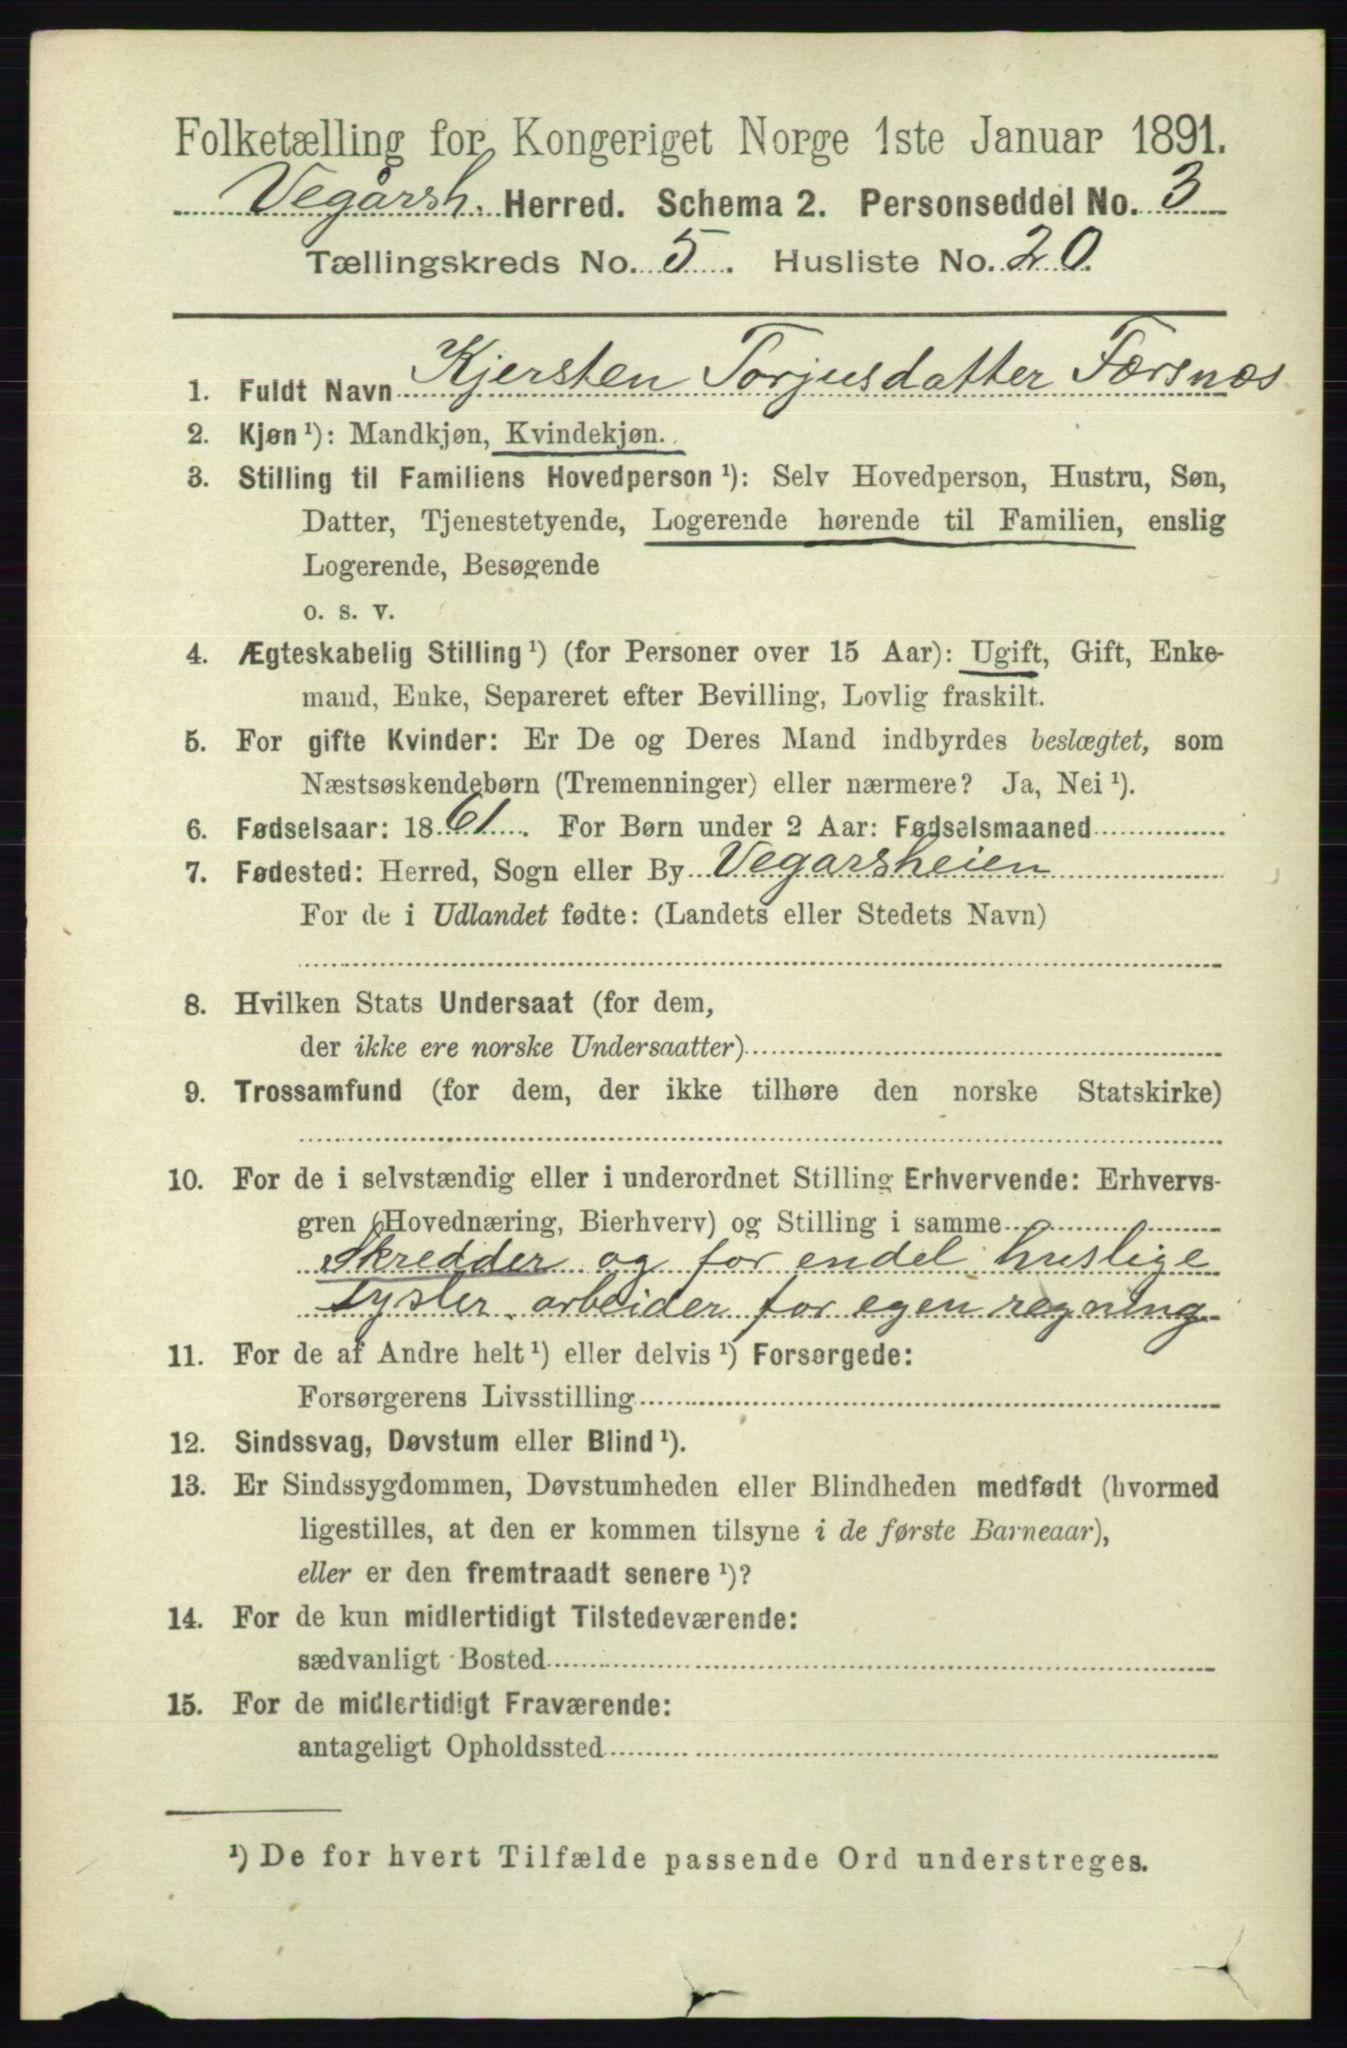 Folketælling for Kongeriget Norge 1ste Januar 1891.
Vegårsh. Herred. Schema 2. Personseddel No. 3
Tællingskreds No. 5. Husliste No. 20.
1. Fuldt Navn Kjersten Torjusdatter Færsnæs
2. Kjøn ¹): Mandkjøn, Kvindekjøn.
3. Stilling til Familiens Hovedperson ¹): Selv Hovedperson, Hustru, Søn,
Datter, Tjenestetyende, Logerende hørende til Familien, enslig
Logerende, Besøgende
o. s. v.
4. Ægteskabelig Stilling ¹) (for Personer over 15 Aar): Ugift, Gift, Enke-
mand, Enke, Separeret efter Bevilling, Lovlig fraskilt.
5. For gifte Kvinder: Er De og Deres Mand indbyrdes beslægtet, som
Næstsøskendebørn (Tremenninger) eller nærmere? Ja, Nei ¹).
6. Fødselsaar: 1861. For Børn under 2 Aar: Fødselsmaaned
7. Fødested: Herred, Sogn eller By Vegarsheien
For de i Udlandet fødte: (Landets eller Stedets Navn)
8. Hvilken Stats Undersaat (for dem,
der ikke ere norske Undersaatter)
9. Trossamfund (for dem, der ikke tilhøre den norske Statskirke)
10. For de i selvstændig eller i underordnet Stilling Erhvervende: Erhvervs-
gren (Hovednæring, Bierhverv) og Stilling i samme
Skredder og for endel huslige
sysler. arbeider for egen regning
11. For de af Andre helt ¹) eller delvis ¹) Forsørgede:
Forsørgerens Livsstilling
12. Sindssvag, Døvstum eller Blind ¹).
13. Er Sindssygdommen, Døvstumheden eller Blindheden medfødt (hvormed
ligestilles, at den er kommen tilsyne i de første Barneaar),
eller er den fremtraadt senere ¹)?
14. For de kun midlertidigt Tilstedeværende:
sædvanligt Bosted
15. For de midlertidigt Fraværende:
antageligt Opholdssted
¹) De for hvert Tilfælde passende Ord understreges.